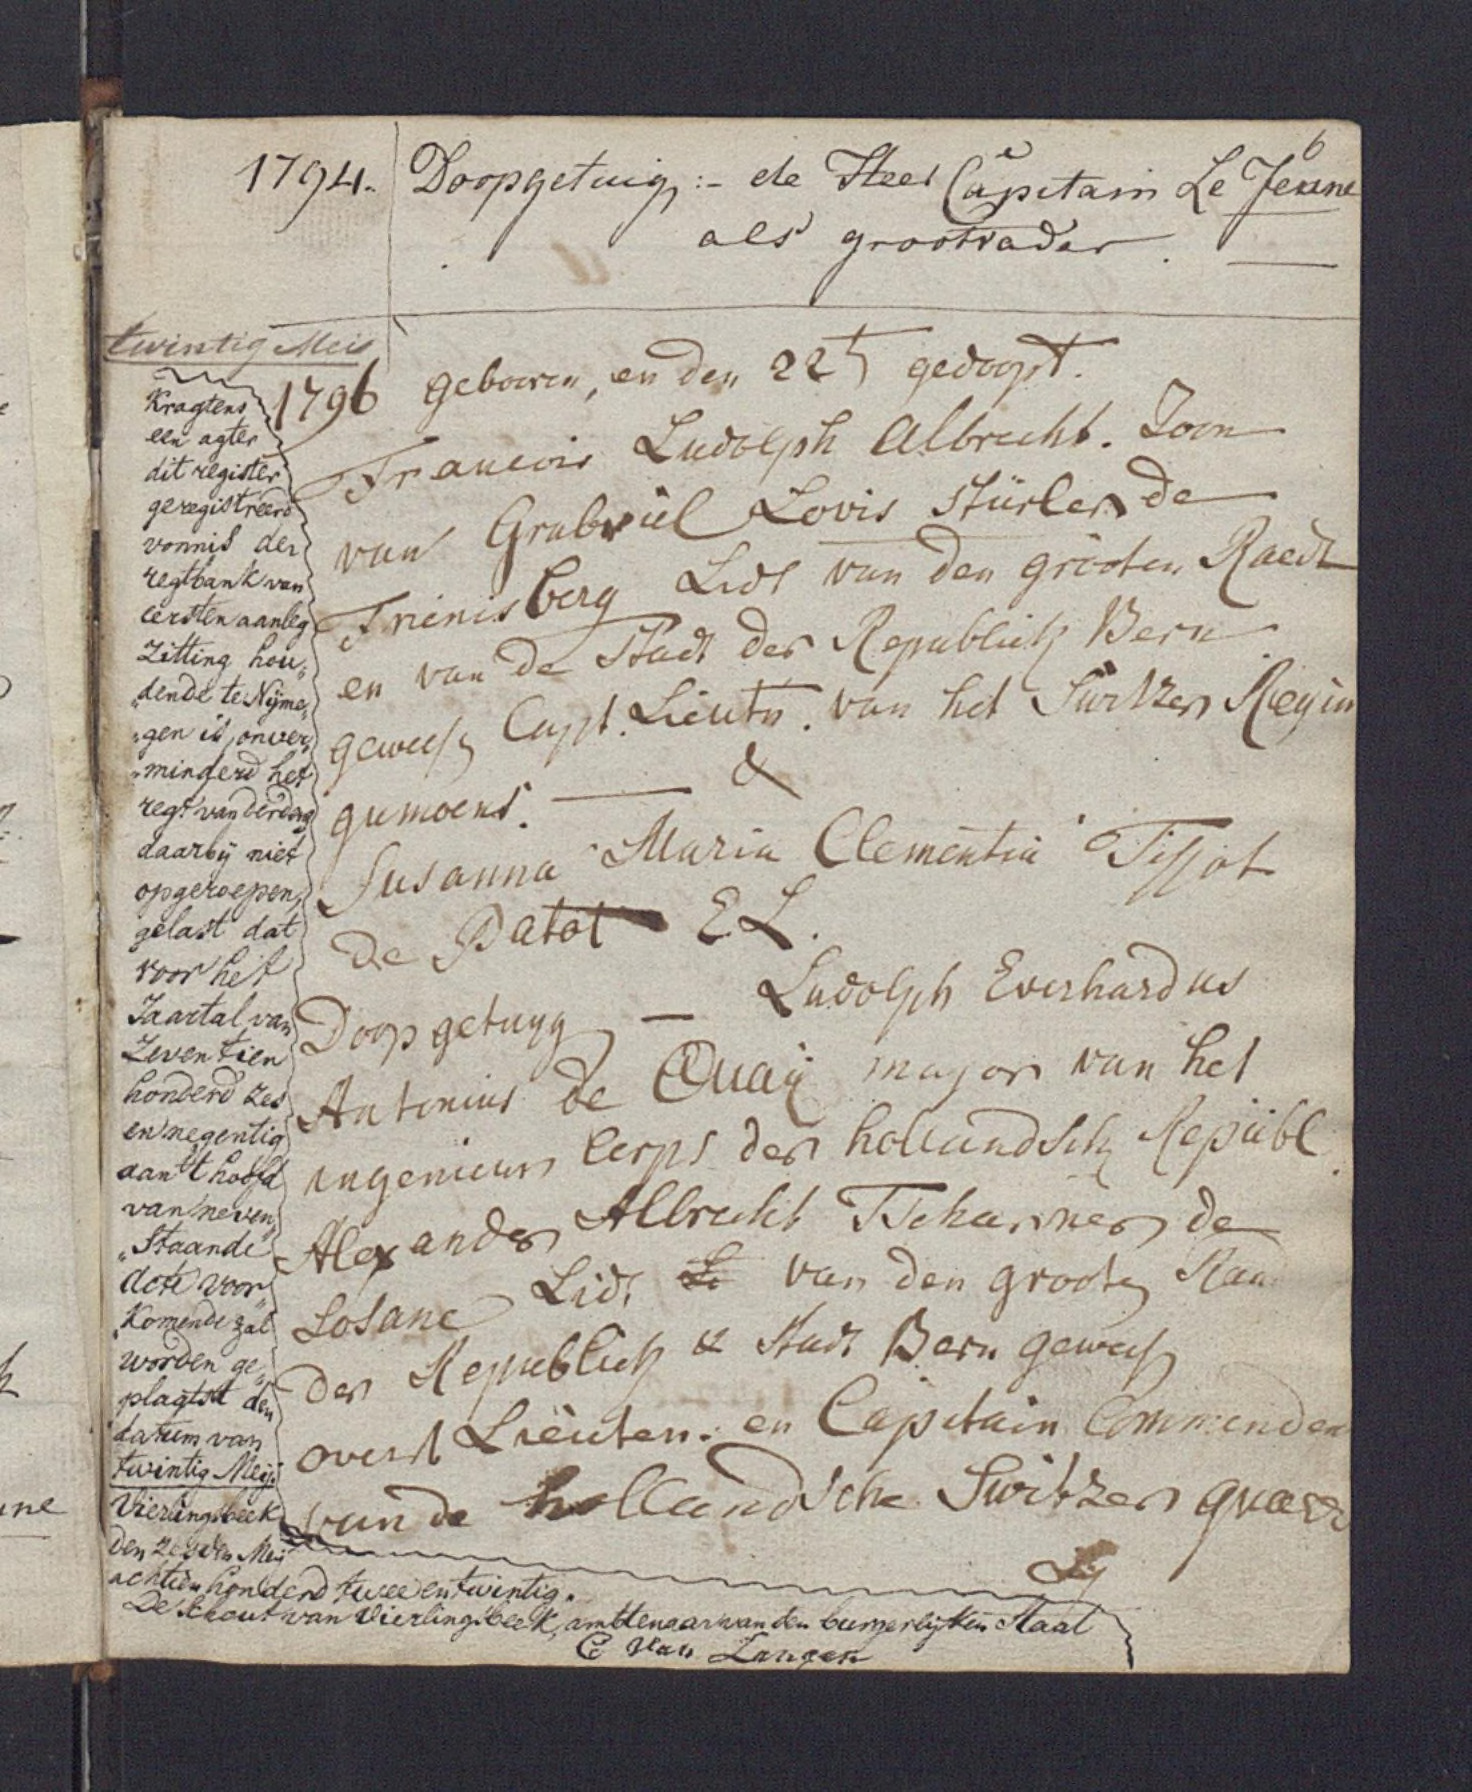 6
1794. Doopgetuig :- de Heer Capitain Le Jeune
als grootvader.
twintig Meis
1796 gebooren, en den 22t gedoopt.
Francois Ludolph Albrecht. Zoon
van Grabriel Lovis Stürler de
Frienisberg Lidt van den grooten Raedt
en van de Stadt der Republick Bern
geweest Capt. Lieutn. van het Switzer Regim
gumoens. — &
Susanna Maria Clementia Tissot
de Patot E.L.
Doopgetuyg — Ludolph Everhardus
Antonius de Quaij major van het
ingenieurs Corps der hollandsch Republ.
Alexander Albrecht Tscharner de
Losane Lidt van den grooten Raa
der Republick & Stadt Bern geweest
overst Lieuten. en Capitain Commenden
van de hollandsche Switzer gvard
Kragtens
een agter
dit register
geregistreerd
vonnis der
regtbank van
eersten aanleg
Zitting hou„
„dende te Nijme„
„gen is, onver„
„minderd het
regt van derden
daarbij niet
opgeroepen,
gelast dat
voor het
Jaartal van
Zeventien
honderd zes
en negentig
aan 't hoofd
van neven„
„Staande
acte voor„
„Komende zal
worden ge„
plaatst den
datum van
twintig Meij.
Vierlingsbeek
den zesden Mei
achtien honderd twee en twintig.
De Schout van Vierlingsbeek, ambtenaar van den burgerlijken Staat
C Van Langen